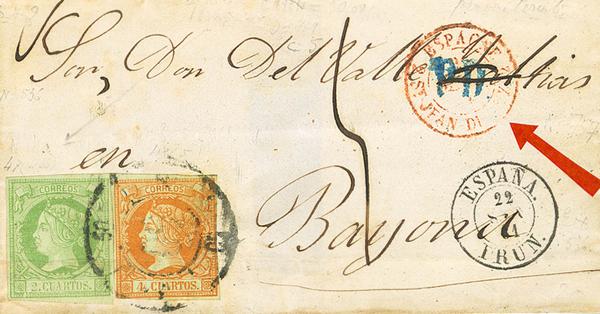 Son, Don Del Valle
ESPAGNE
PD
ST JEAN DE
en
ESPAÑA.
22
IRUN.
Bayona
CORREOS
2. CUARTOS.
CORREOS
4. CUARTOS.